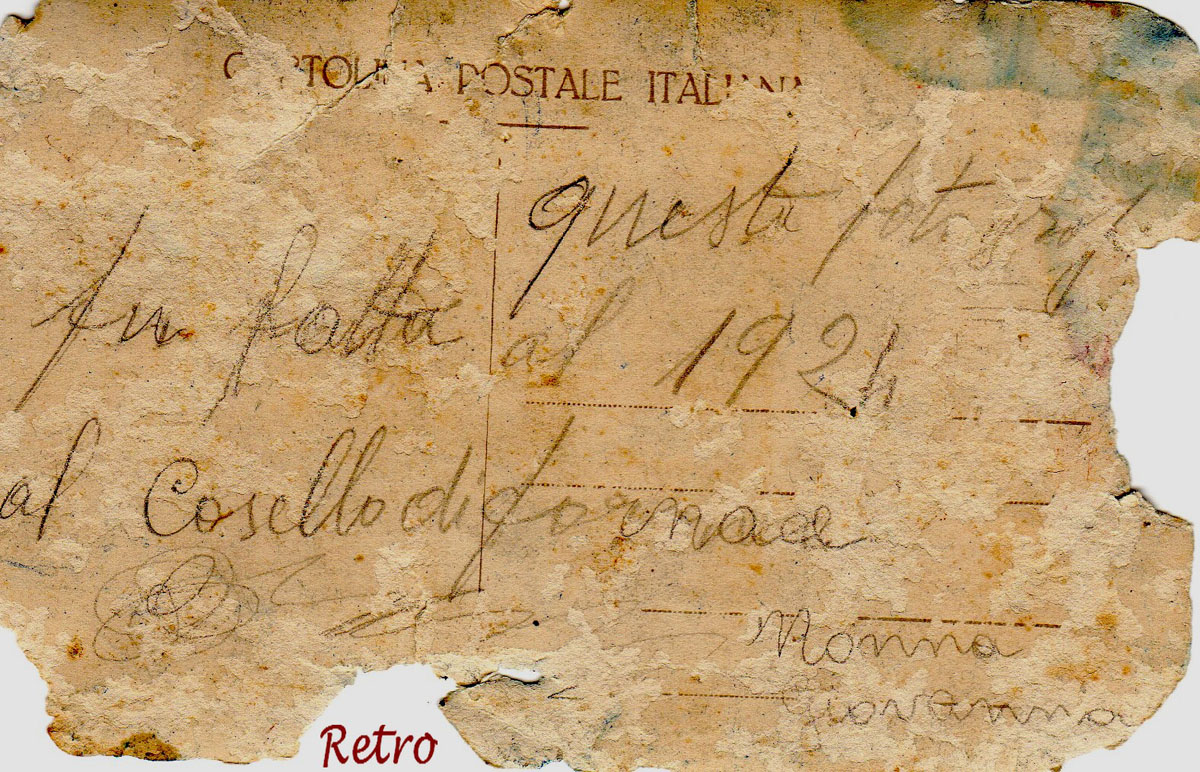 CARTOLINA POSTALE ITALIANA
questa fotograf
fu fatta al 1924
al Casello di fornace
Nonna
Giovanna
Retro